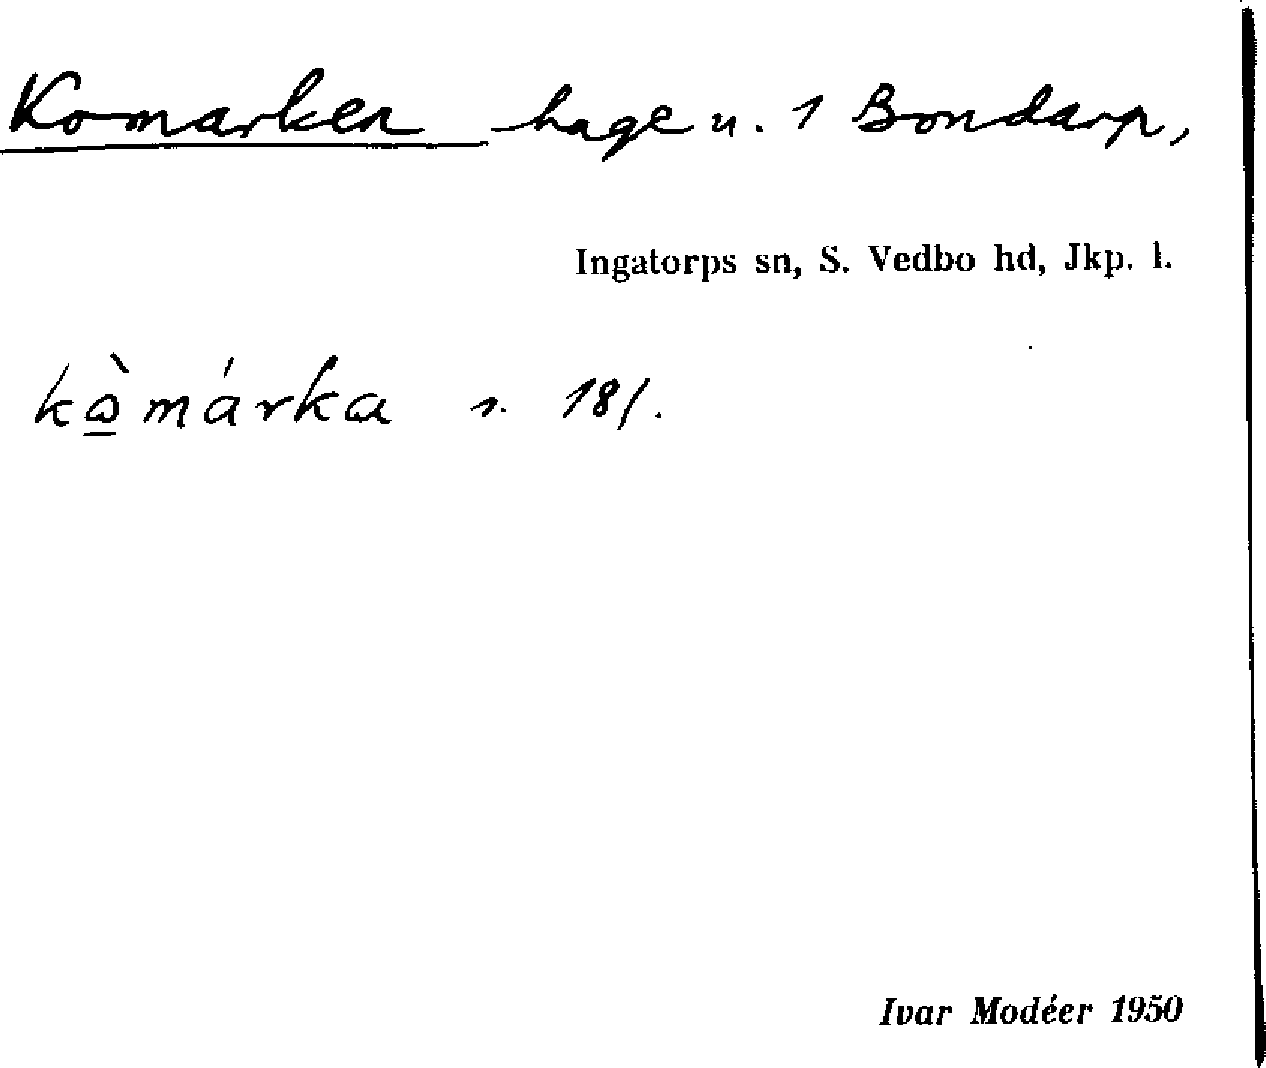 Komarken hage u. 1 Bondarp,
Ingatorps sn, S. Vedbo hd, Jkp. l.
kὼ̲márka s. 18/.
Ivar Modéer 1950